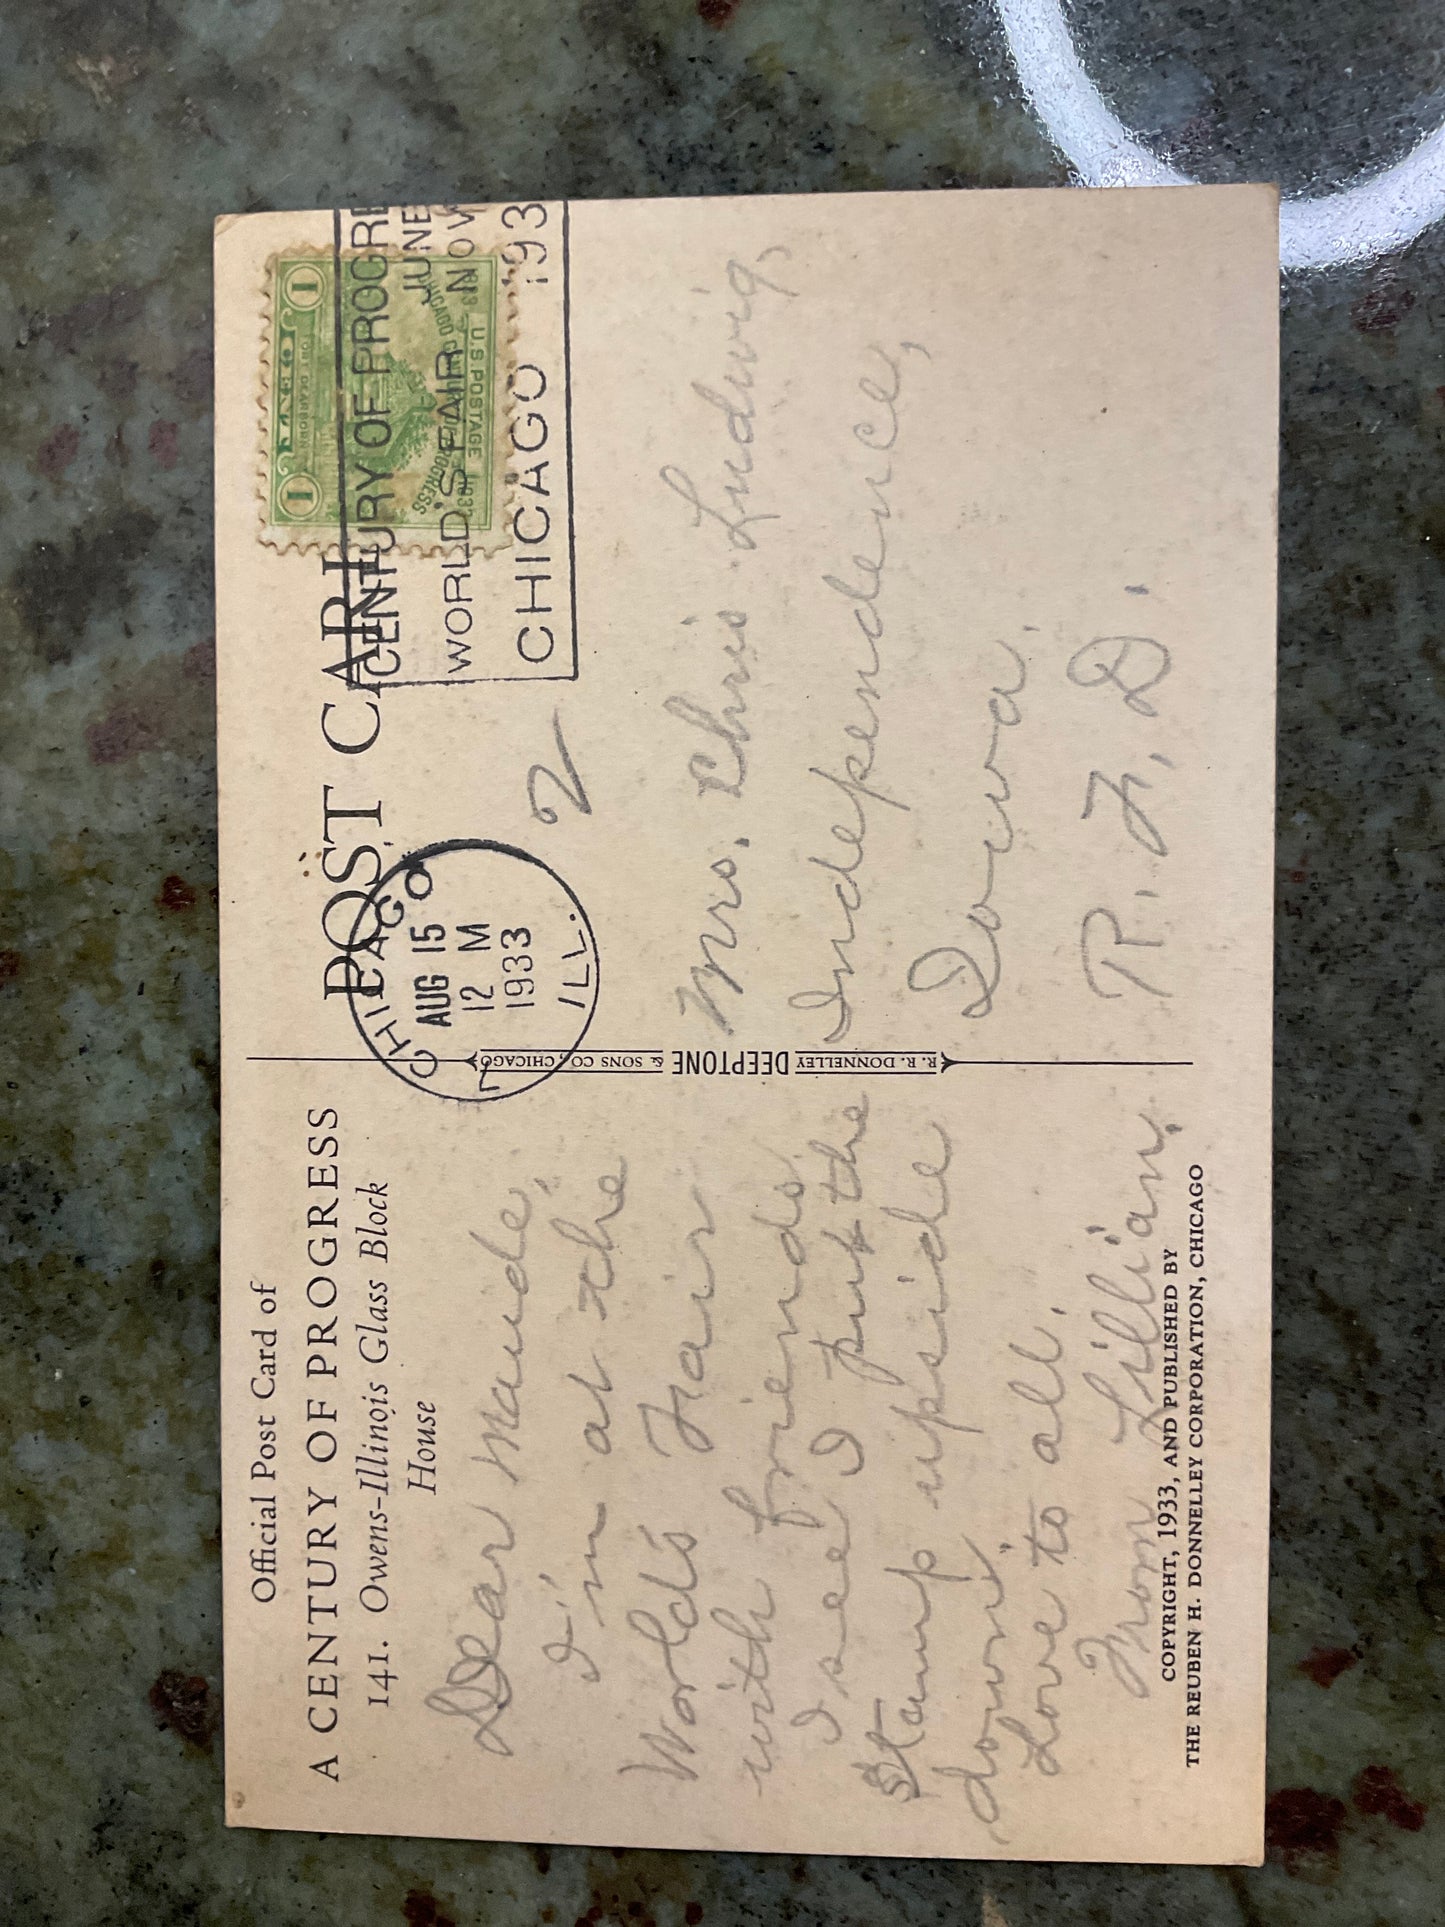 Official Post Card of
A CENTURY OF PROGRESS
141. Owens-Illinois Glass Block
House
Dear Maude,
I'm at the
World's Fair
with friends.
I see I put the
stamp upside
down.
Love to all.
From Lillian.
COPYRIGHT, 1933, AND PUBLISHED BY
THE REUBEN H. DONNELLEY CORPORATION, CHICAGO
R. R. DONNELLEY
DEEPTONE
& SONS CO., CHICAGO
POST CARD
CHICAGO
AUG 15
12 M
1933
ILL.
CENTURY OF PROGRE
JUNE
WORLD'S FAIR NOV
CHICAGO 193
1 1
FORT DEARBORN
U.S. POSTAGE
CHICAGO
PROGRESS
2
Mrs. Chris Ludwig,
Independence,
Iowa.
R. F. D.